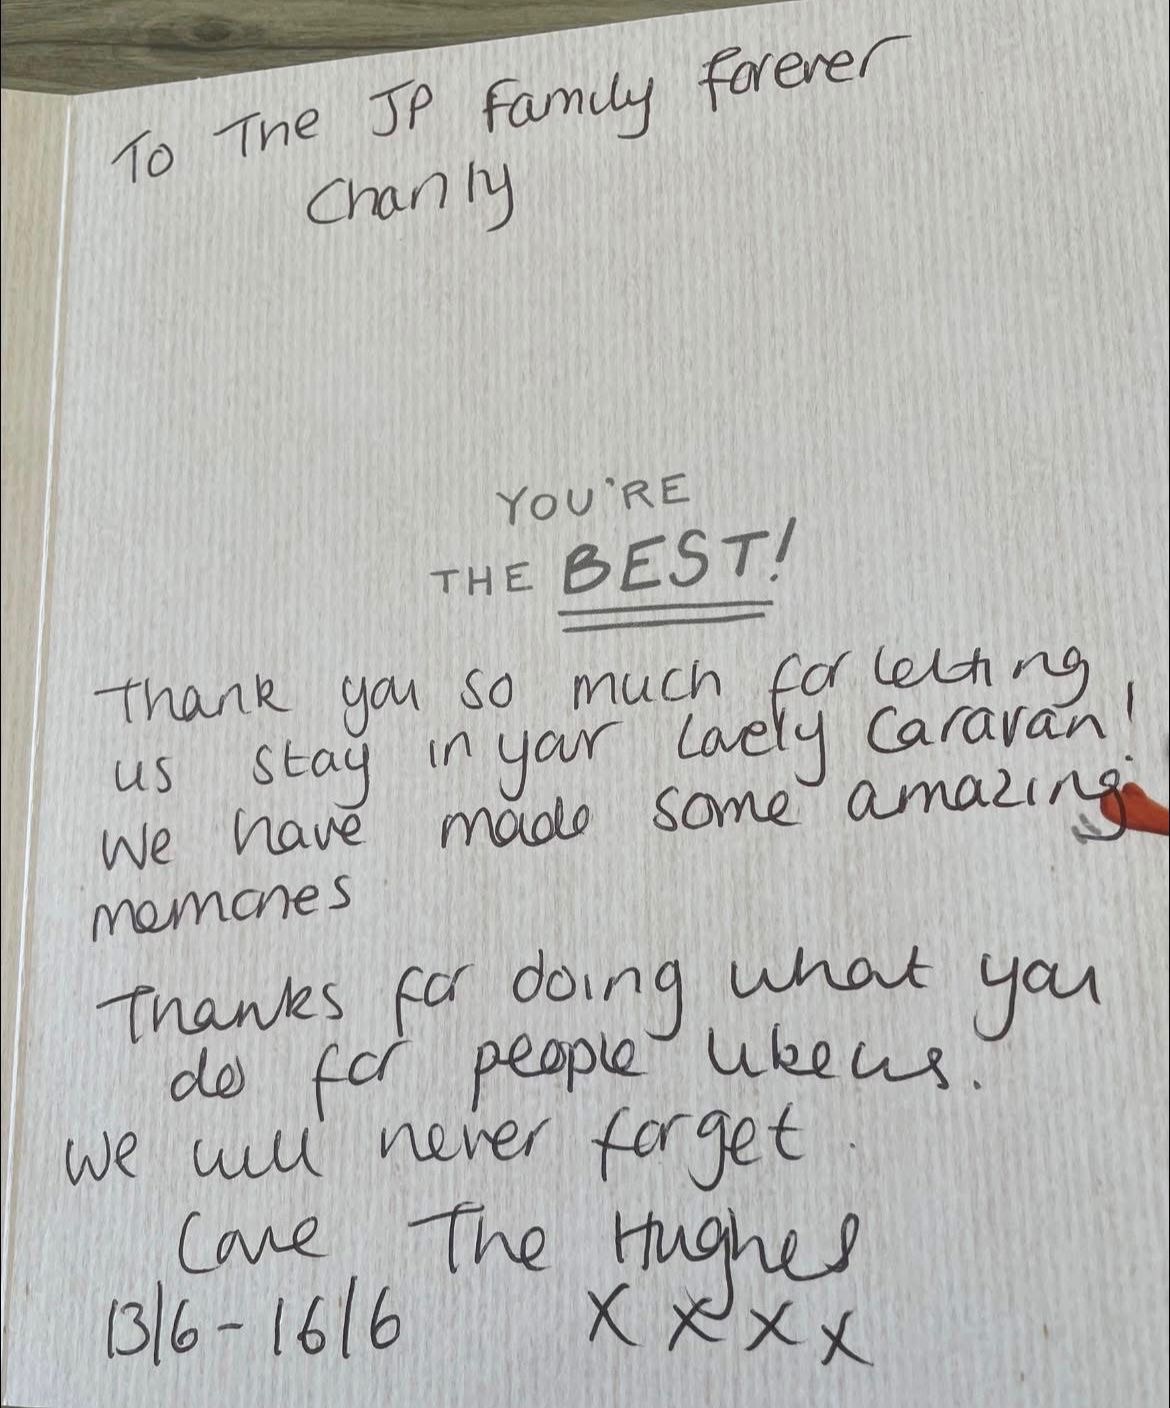 To The JP Family forever
Charity
YOU'RE
THE BEST!
Thank you so much for letting
us stay in your lovely caravan!
We have made some amazing
memories
Thanks for doing what you
do for people like us.
We will never forget.
Love The Hughes
13/6 - 16/6 X X X X